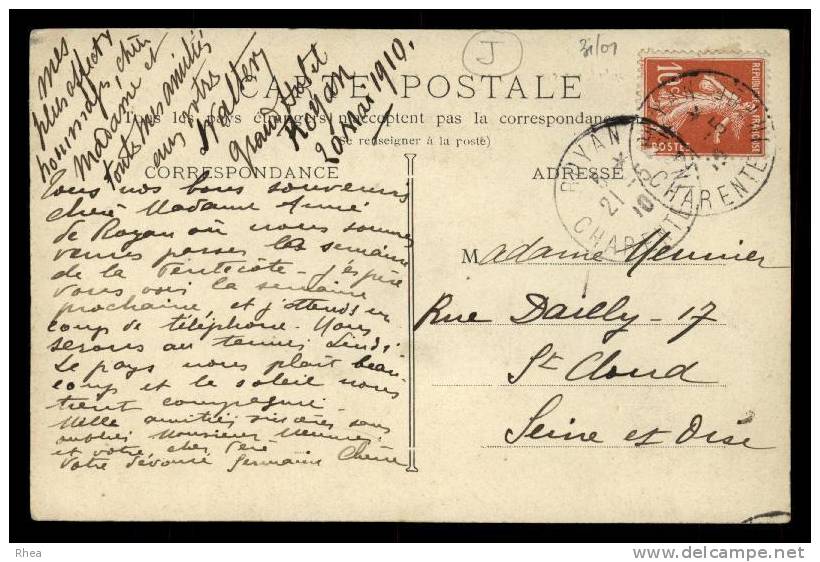 J
31/01
CARTE POSTALE
Tous les pays étrangers n'acceptent pas la correspondance
(Se renseigner à la poste)
CORRESPONDANCE
ADRESSE
10c
REPUBLIQUE FRANÇAISE
POSTES
ROYAN
21
10
CHARENTE
CHARENTE
mes
plus affectx
hommages, chère
Madame et
toutes mes amitiés
aux votres
Walter
Grand Hotel
Royan
20 Mai 1910.
Tous nos bons souvenirs
chère Madame Aimée
de Royan où nous sommes
venues passer la semaine
de la Pentecôte - j'espère
vous voir la semaine
prochaine et j'attends un
coup de téléphone. Nous
serons au tennis Lundi
Le pays nous plait beau-
coup et le soleil nous
tient compagnie.
Mille amitiés sincères sans
oublier Monsieur Meunier
et votre cher Père
Votre dévouée Germaine
Madame Meunier
Rue Dailly - 17
St Cloud
Seine et Oise
Rhea
delcampe.net